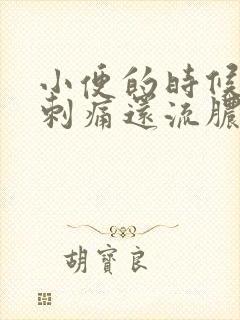 小便的時候
刺痛還流膿
胡寶良